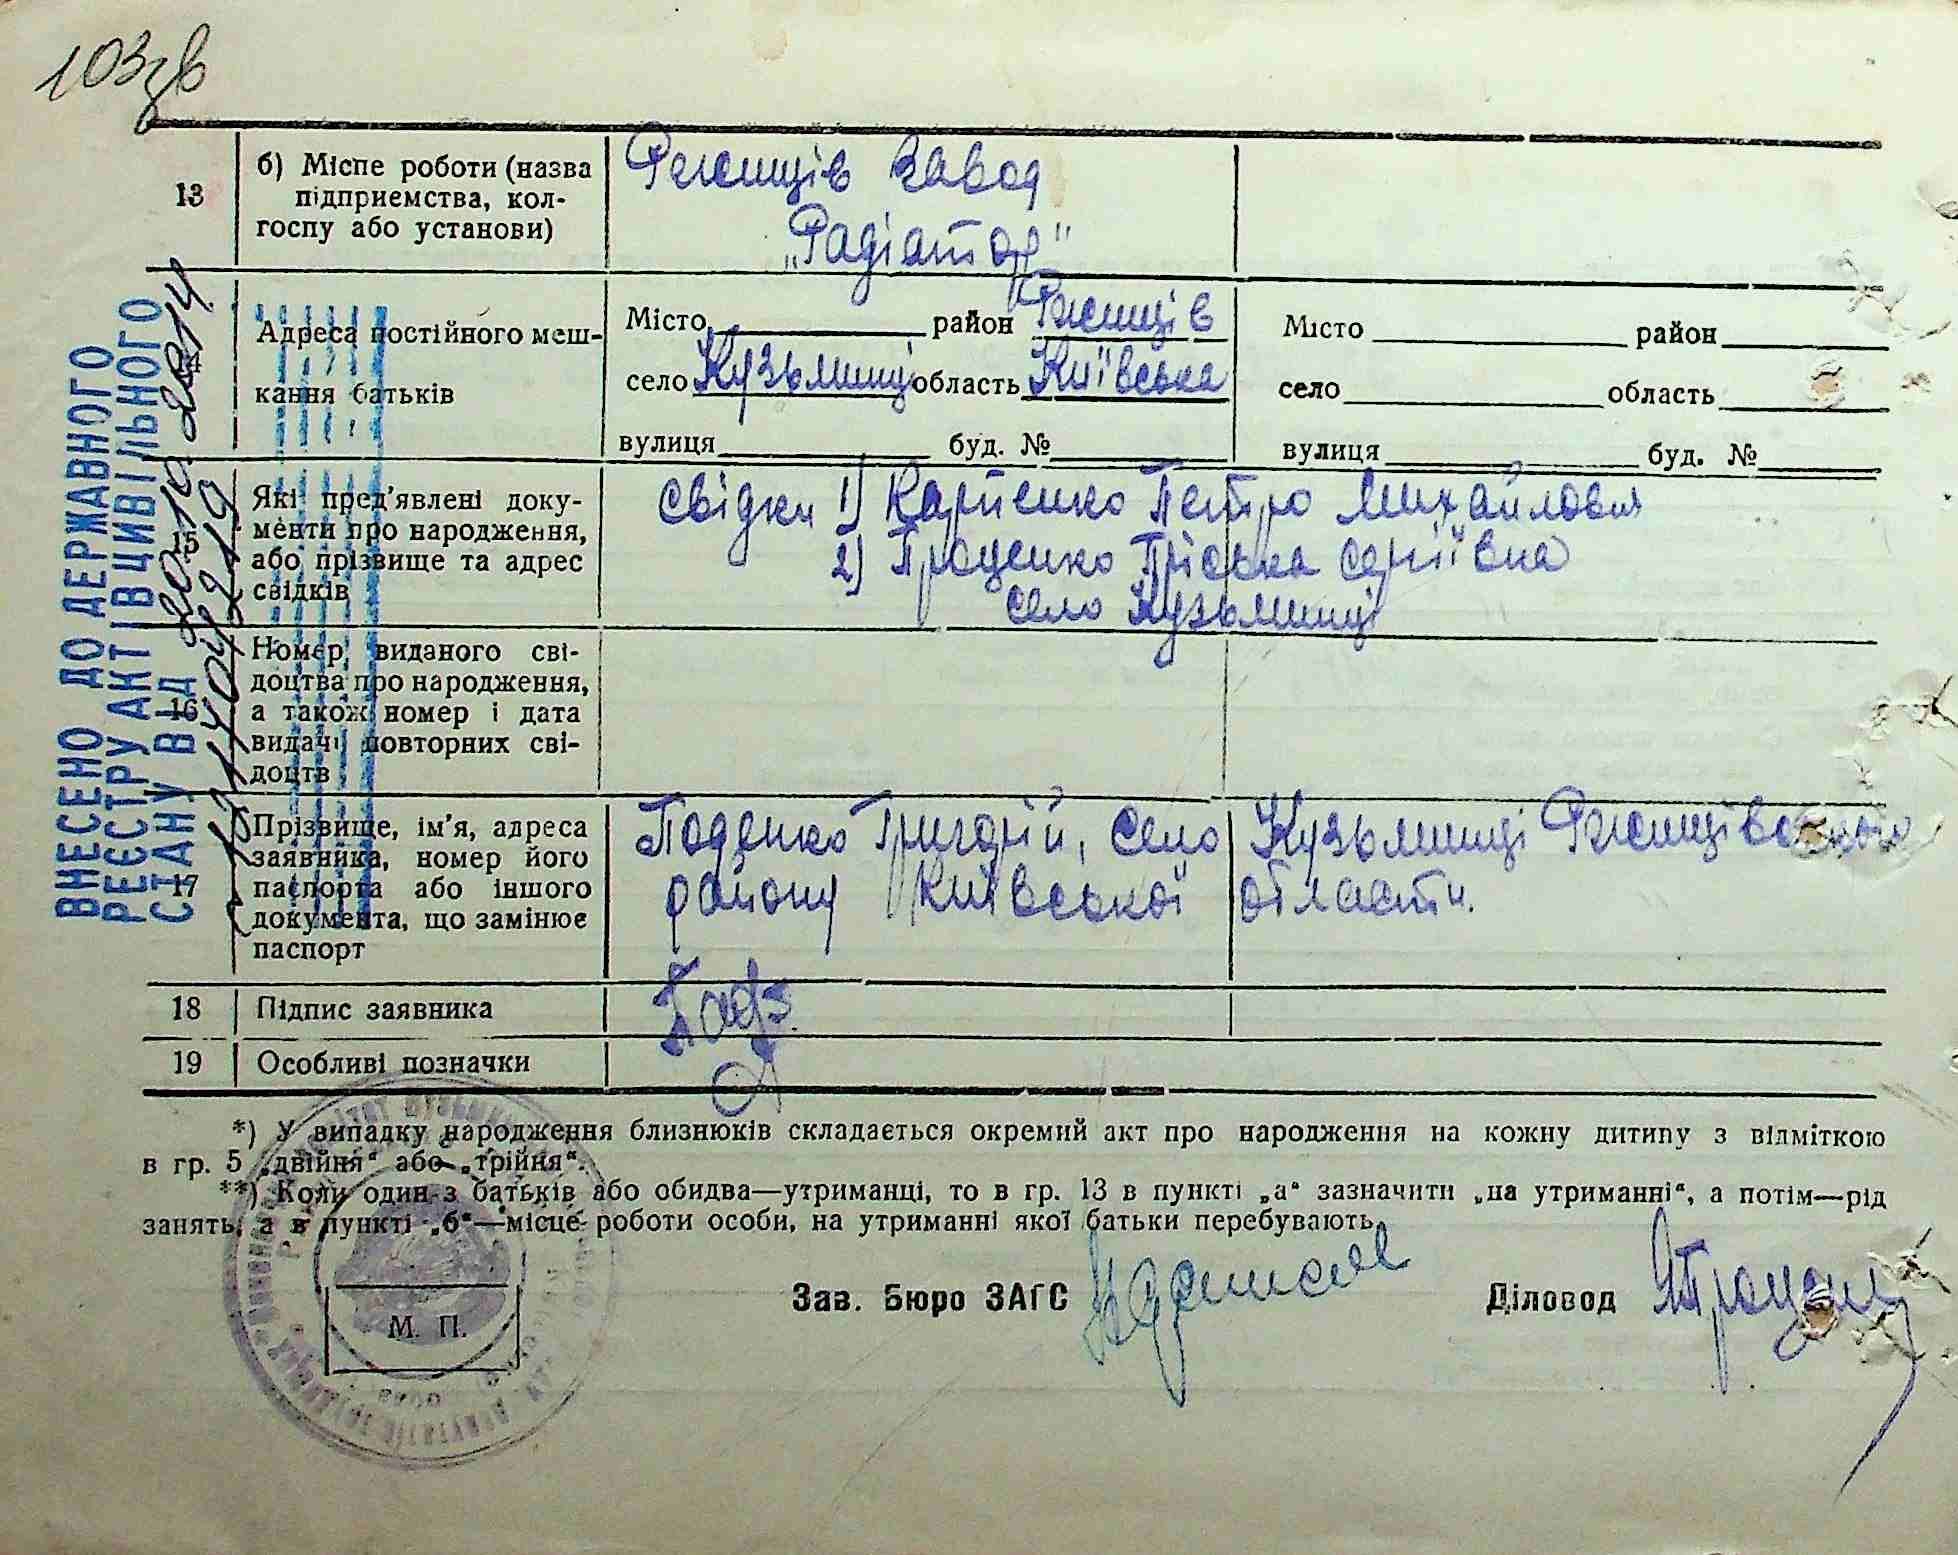 103зв
13
б) Місце роботи (назва
підприємства, кол-
госпу або установи)
Ржищів завод
„Радіатор"
Адреса постійного меш-
кання батьків
Місто район Ржищів
село Кузьминці область Київська
вулиця буд. №
Місто район
село область
вулиця буд. №
15
Які пред'явлені доку-
менти про народження,
або прізвище та адрес
свідків
свідки 1) Карпенко Петро Михайлович
2) Проценко Пріська Сергіївна
село Кузьминці
16
Номер виданого сві-
доцтва про народження,
а також номер і дата
видачі повторних сві-
доцтв
17
Прізвище, ім'я, адреса
заявника, номер його
паспорта або іншого
документа, що замінює
паспорт
Поденко Григорій, село Кузьминці Ржищівського
району Київської області.
18
Підпис заявника
19
Особливі позначки
*) У випадку народження близнюків складається окремий акт про народження на кожну дитину з відміткою
в гр. 5 „двійня" або „трійня".
**) Коли один з батьків або обидва—утриманці, то в гр. 13 в пункті „а" зазначити „на утриманні", а потім—рід
занять, а в пункті „б"—місце роботи особи, на утриманні якої батьки перебувають.
М. П.
Зав. Бюро ЗАГС
Діловод
ВНЕСЕНО ДО ДЕРЖАВНОГО
РЕЄСТРУ АКТІВ ЦИВІЛЬНОГО
СТАНУ ВІД 20 10 2014